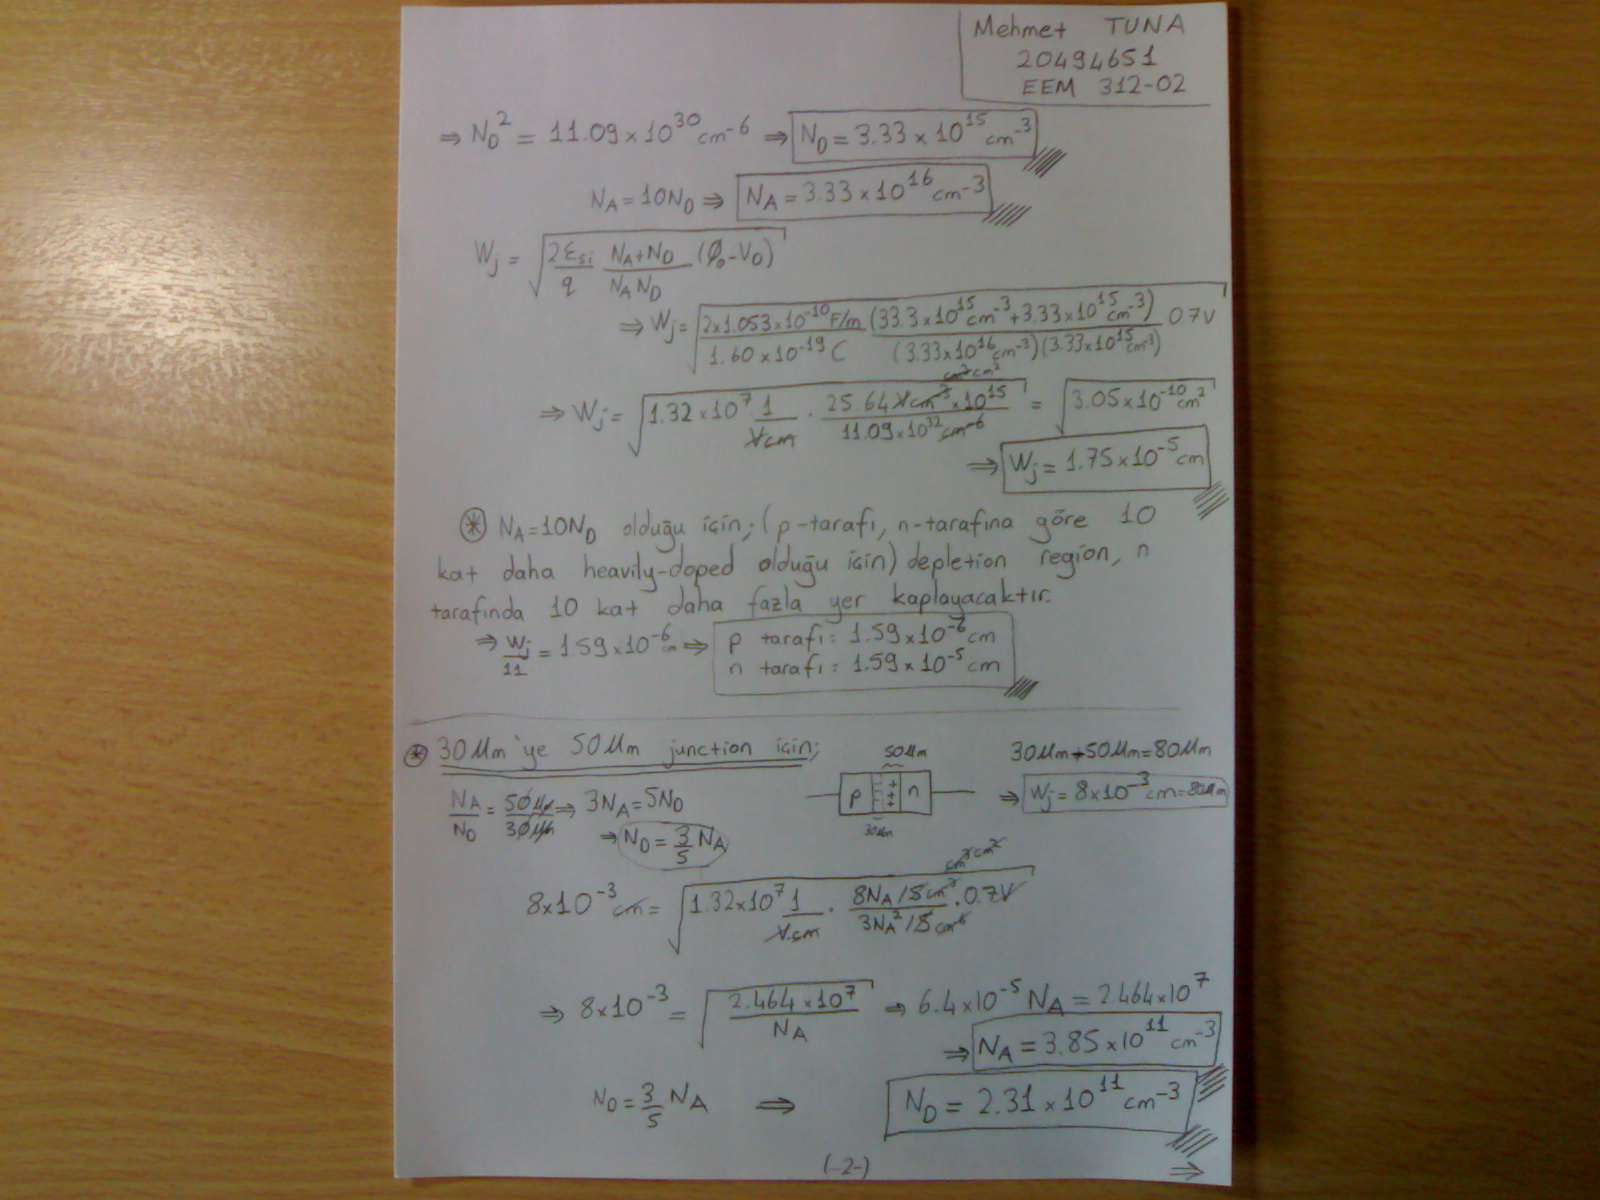 Mehmet TUNA
20494651
EEM 312-02
⇒ N_D^2 = 11.09 × 10^30 cm^-6 ⇒ N_D = 3.33 × 10^15 cm^-3
N_A = 10N_D ⇒ N_A = 3.33 × 10^16 cm^-3
W_j = √(2ε_si/q (N_A+N_D)/(N_A N_D) (Ø_0-V_D))
⇒ W_j = √((2×1.053×10^-10 F/m)/(1.60×10^-19 C) (33.3×10^15 cm^-3+3.33×10^15 cm^-3)/((3.33×10^16 cm^-3)(3.33×10^15 cm^-3)) 0.7V)
⇒ W_j = √(1.32×10^7 1/Vcm . (25.64 Vcm^-3 × 10^15)/(11.09×10^32 cm^-6) cm^3 cm^2) = √(3.05×10^-10 cm^2)
⇒ W_j = 1.75×10^-5 cm
* N_A=10N_D olduğu için; (p-tarafı, n-tarafına göre 10
kat daha heavily-doped olduğu için) depletion region, n
tarafında 10 kat daha fazla yer kaplayacaktır.
⇒ W_j/11 = 1.59×10^-6 cm ⇒ p tarafı: 1.59×10^-6 cm
n tarafı: 1.59×10^-5 cm
* 30Mm'ye 50Mm junction için;
50Mm
p n
30Mm
30Mm+50Mm=80Mm
⇒ W_j = 8×10^-3 cm=80Mm
N_A/N_D = 50Mm/30Mm ⇒ 3N_A=5N_D
⇒ N_D = 3/5 N_A
8×10^-3 cm = √(1.32×10^7 1/V.cm . (8N_A/5 cm^-3)/(3N_A^2/5 cm^-6) . 0.7V cm^3 cm^2)
⇒ 8×10^-3 = √(2.464×10^7/N_A) ⇒ 6.4×10^-5 N_A = 2.464×10^7
⇒ N_A = 3.85×10^11 cm^-3
N_D = 3/5 N_A ⇒ N_D = 2.31×10^11 cm^-3
(-2-) ⇒